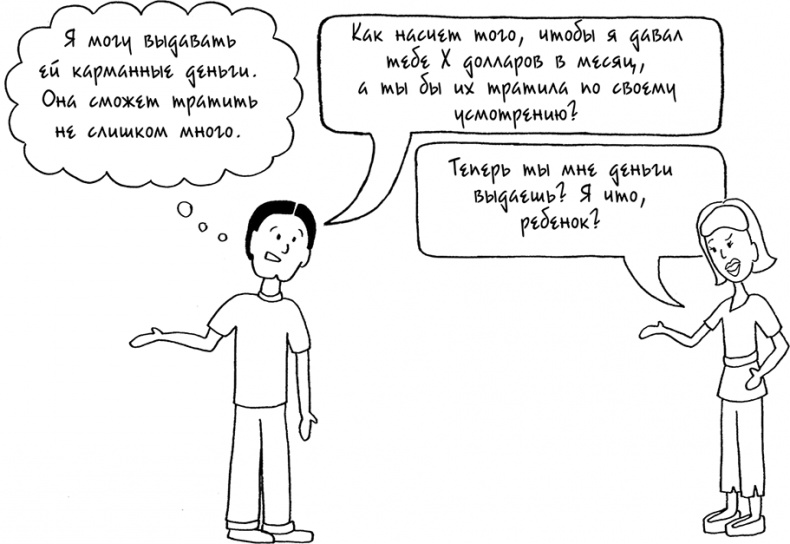 Я могу выдавать
ей карманные деньги.
Она сможет тратить
не слишком много.
Как насчет того, чтобы я давал
тебе X долларов в месяц,
а ты бы их тратила по своему
усмотрению?
Теперь ты мне деньги
выдаешь? Я что,
ребенок?